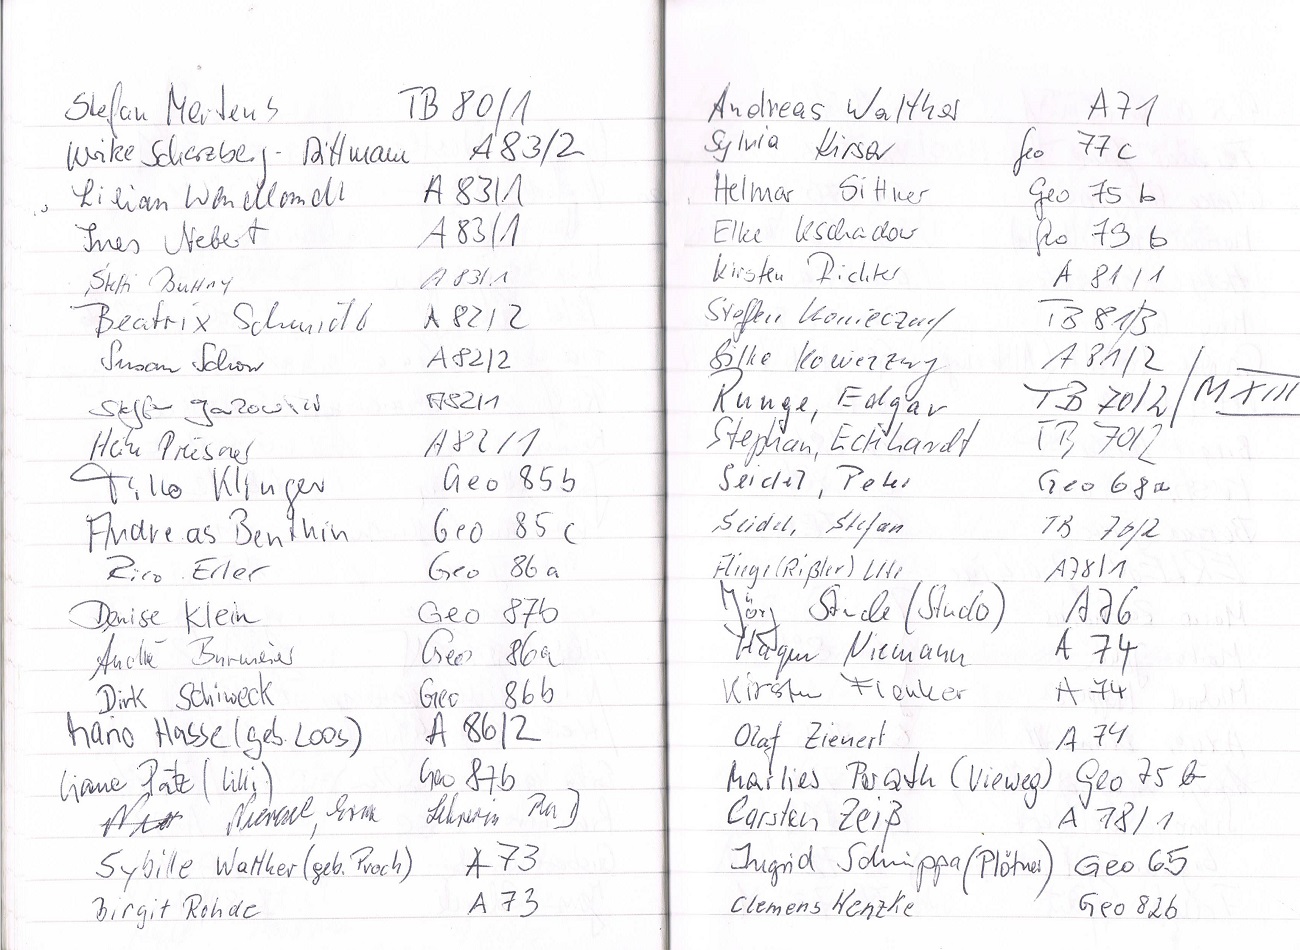 Stefan Mertens TB 80/1
Scherzberg-Dittmann A 83/2
Lilian Wendlandt A 83/1
Ines Nebert A 83/1
Steffi A 83/1
Beatrix Schmidt A 82/2
Susan Schow A 82/2
A82/1
A 82/1
Tilko Klinger Geo 85b
Andreas Benthin Geo 85 c
Rico Erler Geo 86a
Denise Klein Geo 87b
André Burmeier Geo 86a
Dirk Schiweck Geo 86b
Hasse (geb. Loos) A 86/2
Liane Pätz (Lilli) Geo 87b
Sybille Walther (geb. Proch) A 73
Birgit Rohde A 73
Andreas Walther A 71
Sylvia Kirsch Geo 77c
Helmar Sittner Geo 75 b
Elke Kschadow Geo 79 b
Kirsten Richter A 81/1
Steffen Konieczny TB 81/3
Silke Konieczny A 81/2
Runge, Edgar TB 70/2 / M XIII
Stephan, Eckhardt TB 70/2
Seidel, Peter Geo 68a
Seidel, Stefan TB 70/2
Fliege (Rißler) Ute A78/1
Jörg Stude (Studo) A76
Hagen Niemann A 74
Kirsten Flenker A 74
Olaf Zienert A 74
Marlies Porath (Vieweg) Geo 75 b
Carsten Zeiß A 78/1
Ingrid Schnippa (Plötner) Geo 65
Clemens Henzke Geo 82b